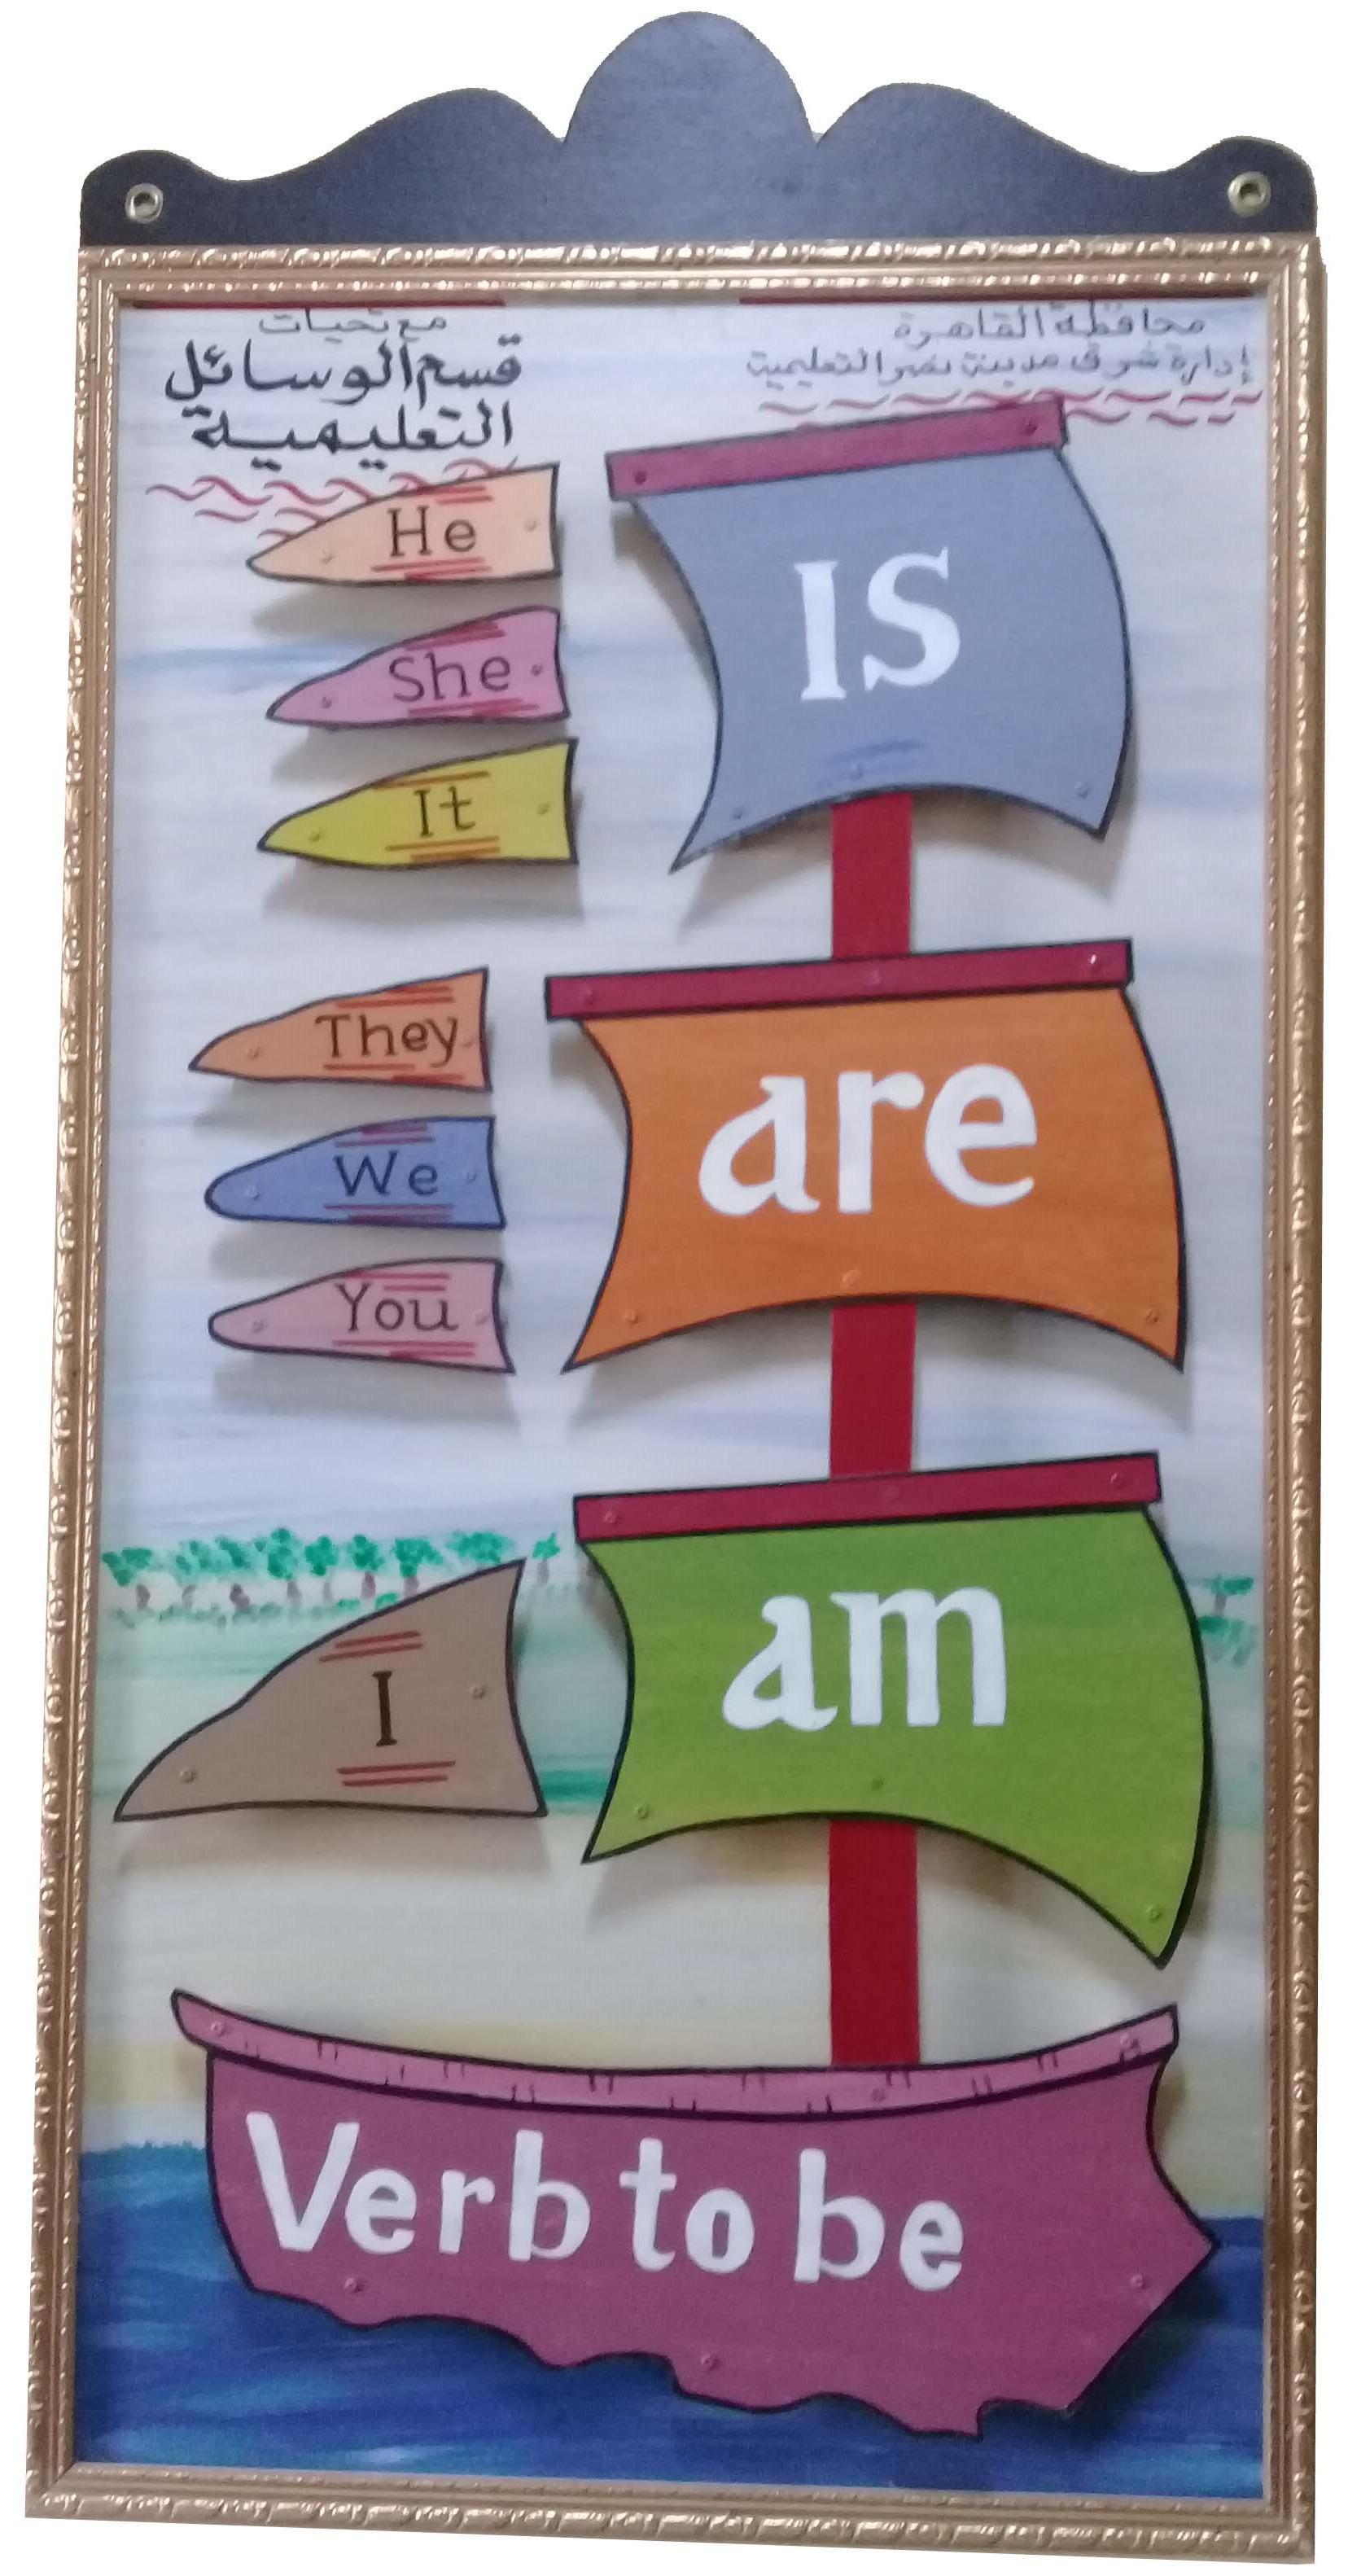 محافظة القاهرة
إدارة شرق مدينة نصر التعليمية
مع تحيات
قسم الوسائل
التعليمية
He
She
It
IS
They
We
You
are
I
am
Verb to be